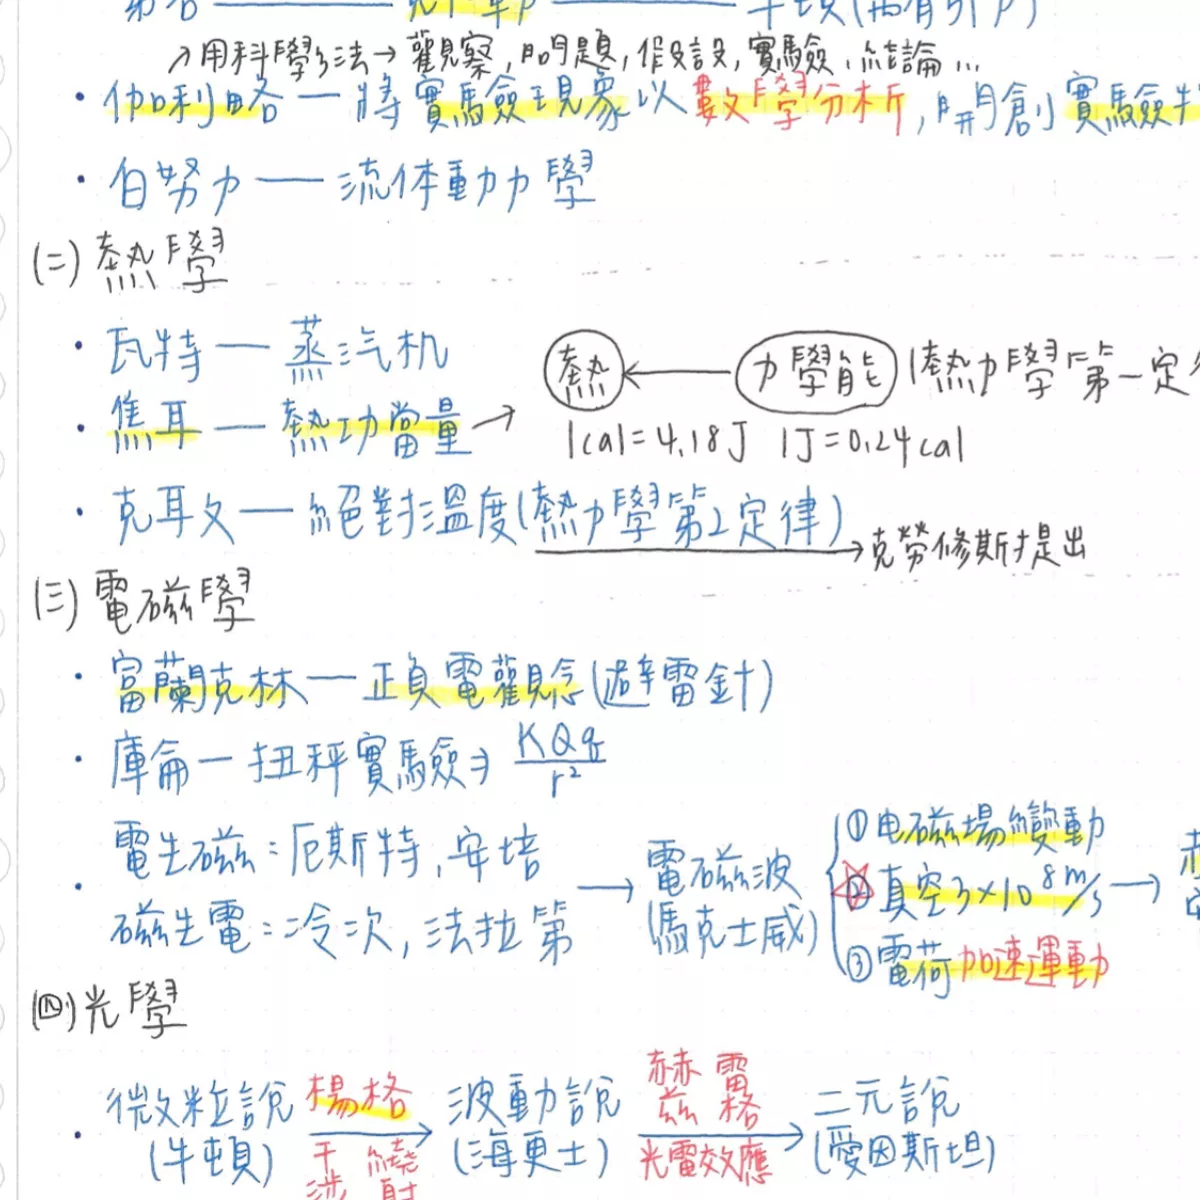 ↗用科學方法→觀察,問題,假設,實驗、結論...
・伽利略—將實驗現象以數學分析,開創實驗
・白努力—流体動力學
(二)熱學
・瓦特—蒸汽机
熱←力學能(熱力學第一定
・焦耳—熱功當量→
1cal=4.18J 1J=0.24cal
・克耳文—絕對溫度(熱力學第2定律)
→克勞修斯提出
(三)電磁學
・富蘭克林—正負電觀念(避雷針)
・庫侖—扭秤實驗⇒KQq/r²
・電生磁:厄斯特,安培
磁生電:冷次,法拉第
→電磁波
(馬克士威)
①电磁場變動
②真空3×10⁸m/s→
③電荷加速運動
(四)光學
・微粒說 楊格 波動說 赫茲 雷格 二元說
(牛頓) 干涉 繞射 (海更士) 光電效應 (愛因斯坦)